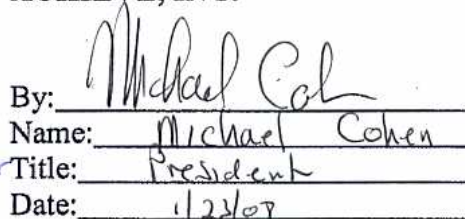 By: Michael Coh
Name: Michael Cohen
Title: President
Date: 1/23/08